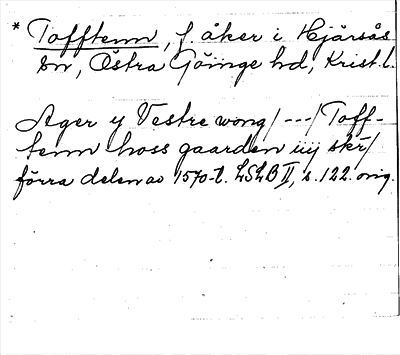 * Tofftenn, f. åker i Hjärsås
sn, Östra Göinge hd, Krist. l.
Ager y Vestre wong/---/Toff-
tenn hoss gaarden iiij skr/
förra delen av 1570-t. LSLB II, s. 122. orig.